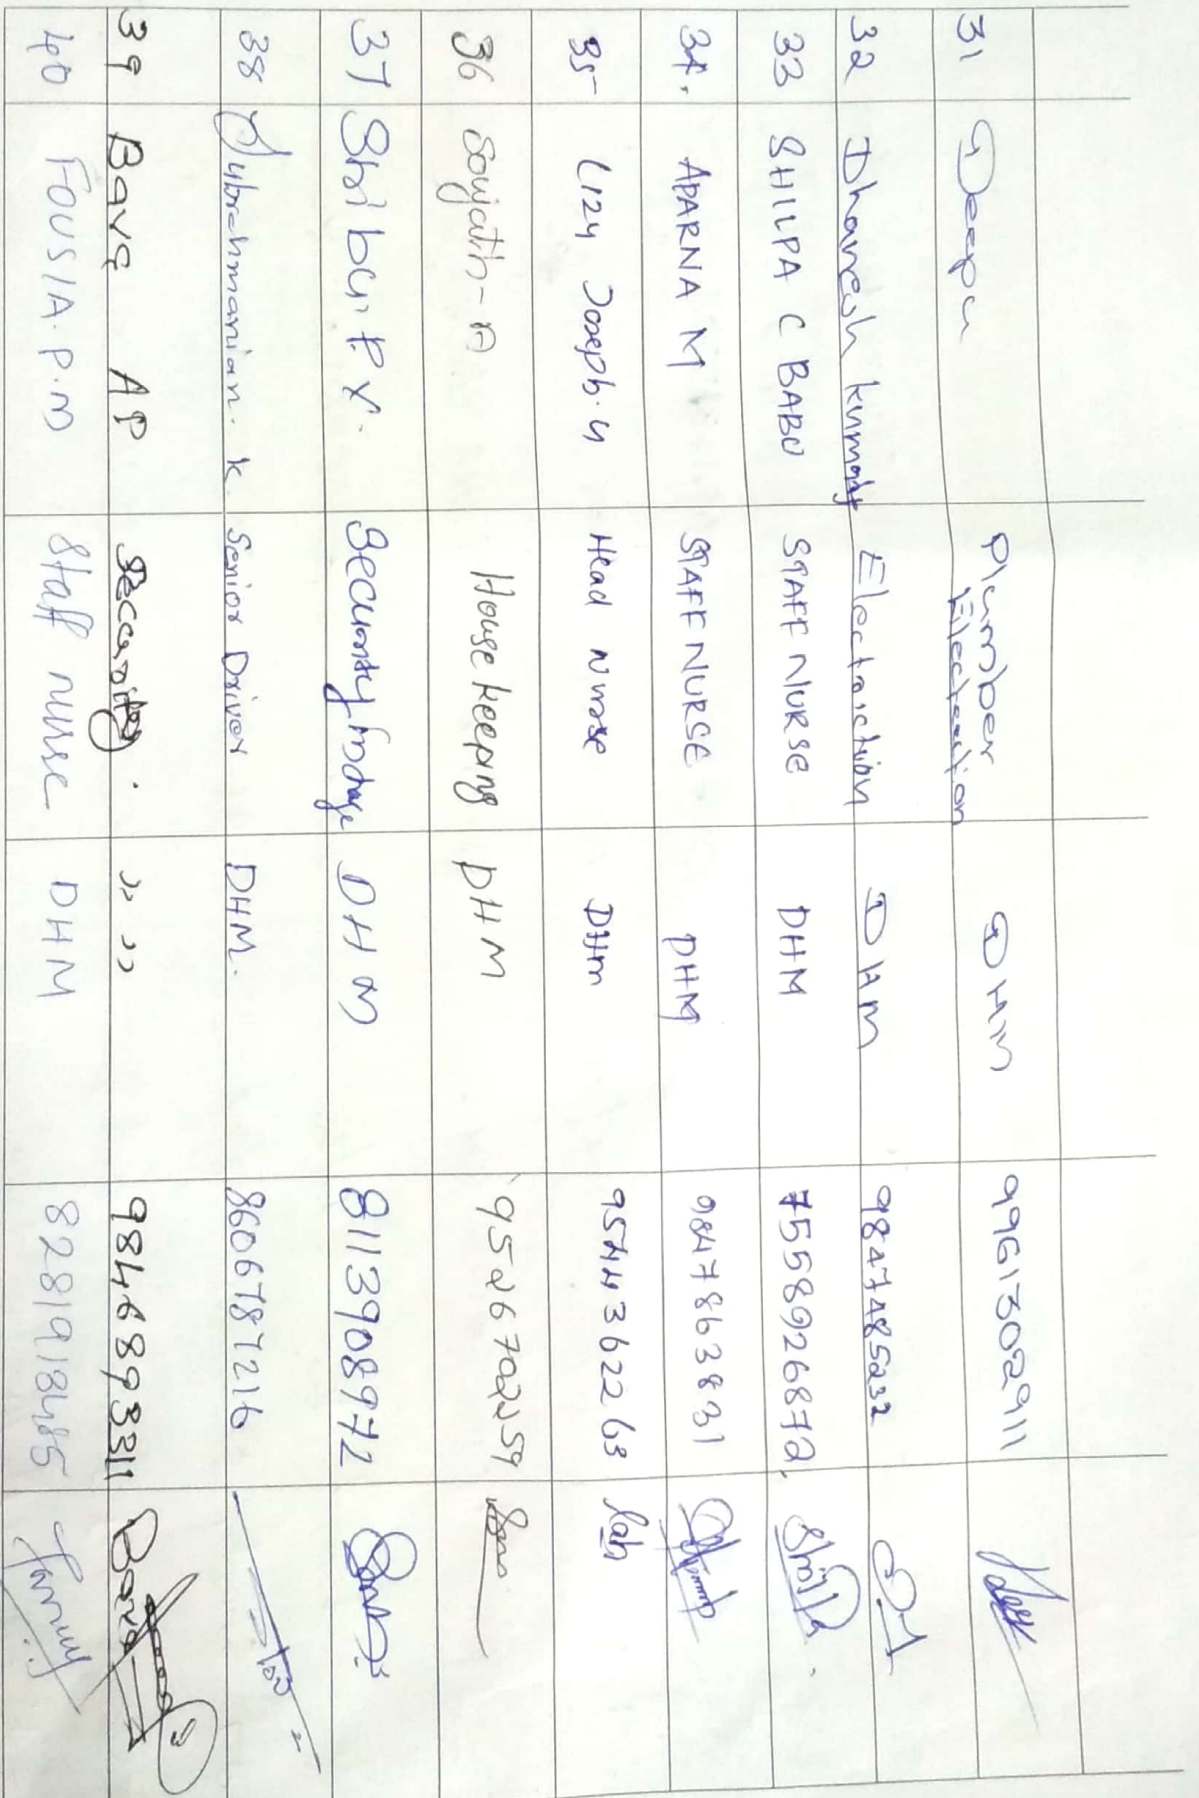 31 Deepu Plumber Electrection DHM 9961302911
32 Dhanesh kumar Electriction DHM 9847485232
33 SHILPA C BABU STAFF NURSE DHM 7558926872,
34. APARNA M STAFF NURSE DHM 9847863831
35 Lizy Joseph.U Head Nurse DHM 9544362263
36 Soujath-M House keeping DHM 9526702259
37 Shibu.P.X. Security DHM 8113908972
38 Subrahmanian. K. Senior Driver DHM. 8606787216
39 Bava AP Security. ,, ,, 9846893311
40 FOUSIA.P.M Staff nurse DHM 8281918485